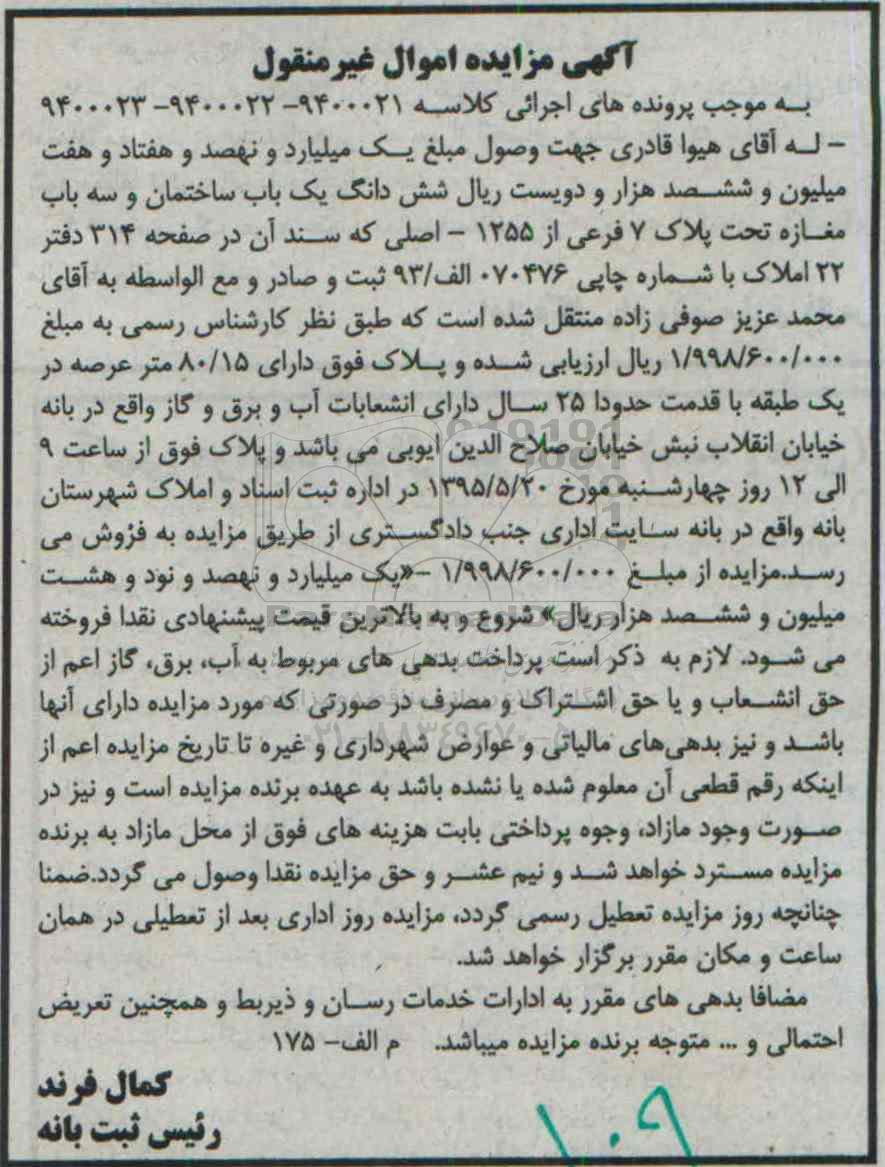 آگهی مزایده اموال غیرمنقول
به موجب پرونده های اجرائی کلاسه ۹۴۰۰۰۲۱- ۹۴۰۰۰۲۲- ۹۴۰۰۰۲۳
- له آقای هیوا قادری جهت وصول مبلغ یک میلیارد و نهصد و هفتاد و هفت
میلیون و ششصد هزار و دویست ریال شش دانگ یک باب ساختمان و سه باب
مغازه تحت پلاک ۷ فرعی از ۱۲۵۵ - اصلی که سند آن در صفحه ۳۱۴ دفتر
۲۲ املاک با شماره چاپی ۰۷۰۴۷۶ الف/۹۳ ثبت و صادر و مع الواسطه به آقای
محمد عزیز صوفی زاده منتقل شده است که طبق نظر کارشناس رسمی به مبلغ
۱/۹۹۸/۶۰۰/۰۰۰ ریال ارزیابی شده و پلاک فوق دارای ۸۰/۱۵ متر عرصه در
یک طبقه با قدمت حدودا ۲۵ سال دارای انشعابات آب و برق و گاز واقع در بانه
خیابان انقلاب نبش خیابان صلاح الدین ایوبی می باشد و پلاک فوق از ساعت ۹
الی ۱۲ روز چهارشنبه مورخ ۱۳۹۵/۵/۲۰ در اداره ثبت اسناد و املاک شهرستان
بانه واقع در بانه سایت اداری جنب دادگستری از طریق مزایده به فروش می
رسد.مزایده از مبلغ ۱/۹۹۸/۶۰۰/۰۰۰ -«یک میلیارد و نهصد و نود و هشت
میلیون و ششصد هزار ریال» شروع و به بالاترین قیمت پیشنهادی نقدا فروخته
می شود. لازم به ذکر است پرداخت بدهی های مربوط به آب، برق، گاز اعم از
حق انشعاب و یا حق اشتراک و مصرف در صورتی که مورد مزایده دارای آنها
باشد و نیز بدهی‌های مالیاتی و عوارض شهرداری و غیره تا تاریخ مزایده اعم از
اینکه رقم قطعی آن معلوم شده یا نشده باشد به عهده برنده مزایده است و نیز در
صورت وجود مازاد، وجوه پرداختی بابت هزینه های فوق از محل مازاد به برنده
مزایده مسترد خواهد شد و نیم عشر و حق مزایده نقدا وصول می گردد.ضمنا
چنانچه روز مزایده تعطیل رسمی گردد، مزایده روز اداری بعد از تعطیلی در همان
ساعت و مکان مقرر برگزار خواهد شد.
مضافا بدهی های مقرر به ادارات خدمات رسان و ذیربط و همچنین تعریض
احتمالی و ... متوجه برنده مزایده میباشد. م الف- ۱۷۵
کمال فرند
رئیس ثبت بانه
۱۰۹